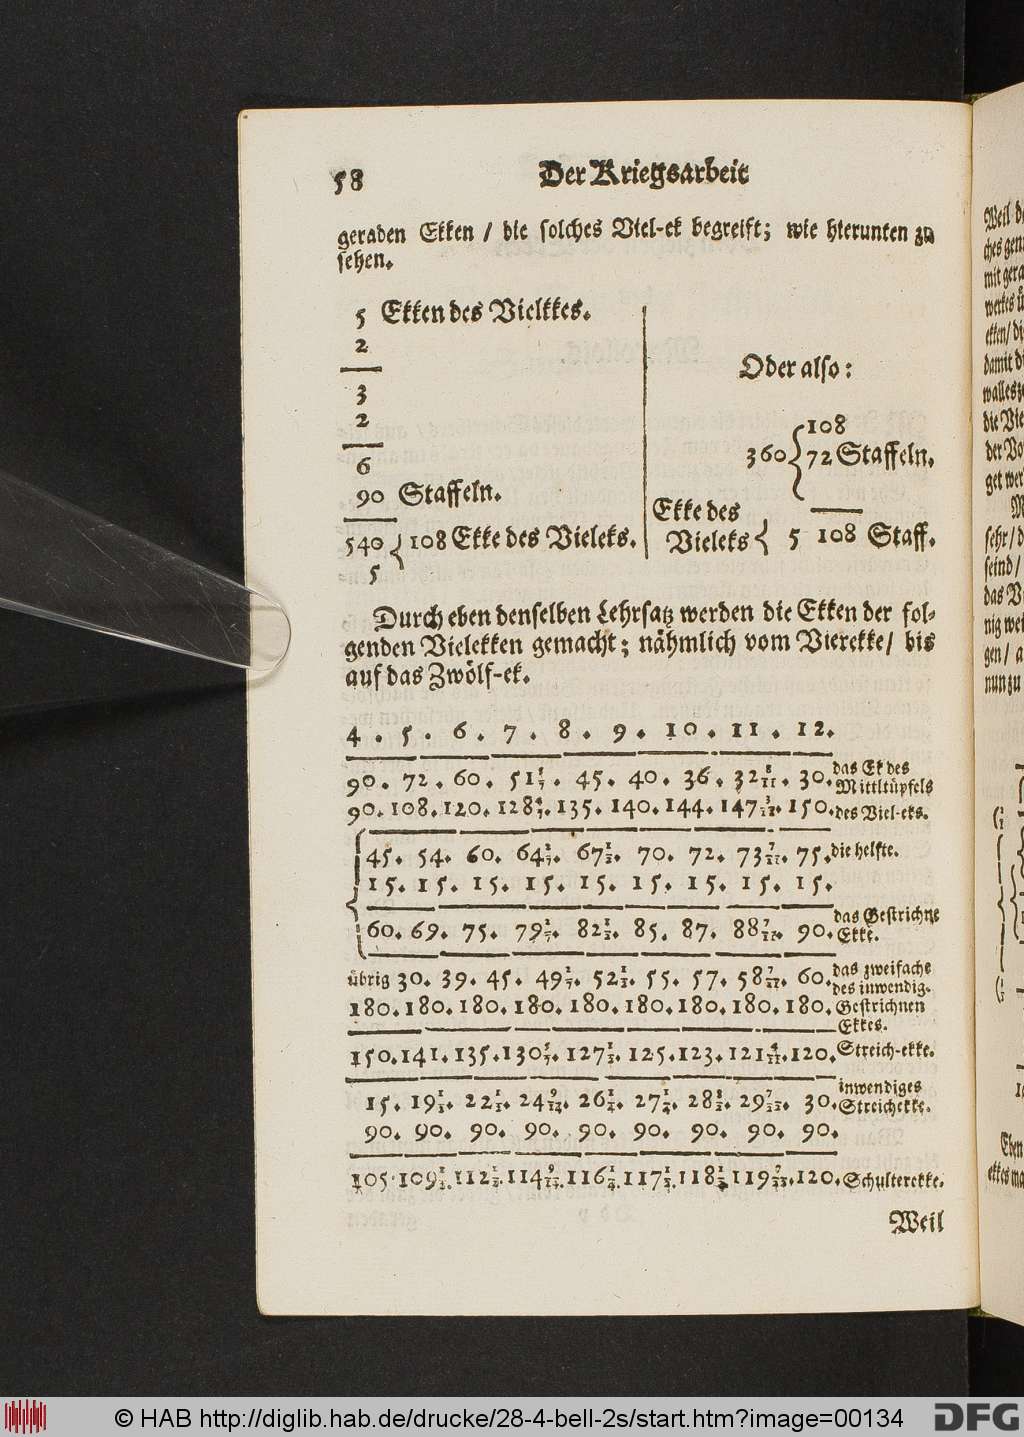 58 Der Kriegsarbeit
geraden Ekken / die solches Viel-ek begreift; wie hierunten zu
sehen.
5 Ekken des Vielkkes.
2
3
2
6
90 Staffeln.
540 { 108 Ekke des Vieleks.
5
Oder also:
108
360 { 72 Staffeln.
Ekke des
Vieleks { 5 108 Staff.
Durch eben denselben Lehrsatz werden die Ekken der fol-
genden Vielekken gemacht; nähmlich vom Vierekke / bis
auf das Zwölf-ek.
4 . 5 . 6 . 7 . 8 . 9 . 10 . 11 . 12.
90. 72. 60. 51 3/7. 45. 40. 36. 32 8/11. 30. das Ek des
Mittltüpfels
90. 108. 120. 128 4/7. 135. 140. 144. 147 3/11. 150. des Viel-eks.
45. 54. 60. 64 2/7. 67 1/2. 70. 72. 73 7/11. 75. die helfte.
15. 15. 15. 15. 15. 15. 15. 15. 15.
60. 69. 75. 79 2/7. 82 1/2. 85. 87. 88 7/11. 90. das Gestrichne
Ekke.
übrig 30. 39. 45. 49 2/7. 52 1/2. 55. 57. 58 7/11. 60. das zweifache
des inwendig.
180. 180. 180. 180. 180. 180. 180. 180. 180. Gestrichnen
Ekkes.
150. 141. 135. 130 5/7. 127 1/2. 125. 123. 121 4/11. 120. Streich-ekke.
15. 19 1/2. 22 1/2. 24 9/14. 26 1/4. 27 1/2. 28 1/2. 29 7/22. 30. inwendiges
Streichekke.
90. 90. 90. 90. 90. 90. 90. 90. 90.
105. 109 1/2. 112 1/2. 114 9/14. 116 1/4. 117 1/2. 118 1/2. 119 7/22. 120. Schulterekke.
Weil
© HAB http://diglib.hab.de/drucke/28-4-bell-2s/start.htm?image=00134
DFG